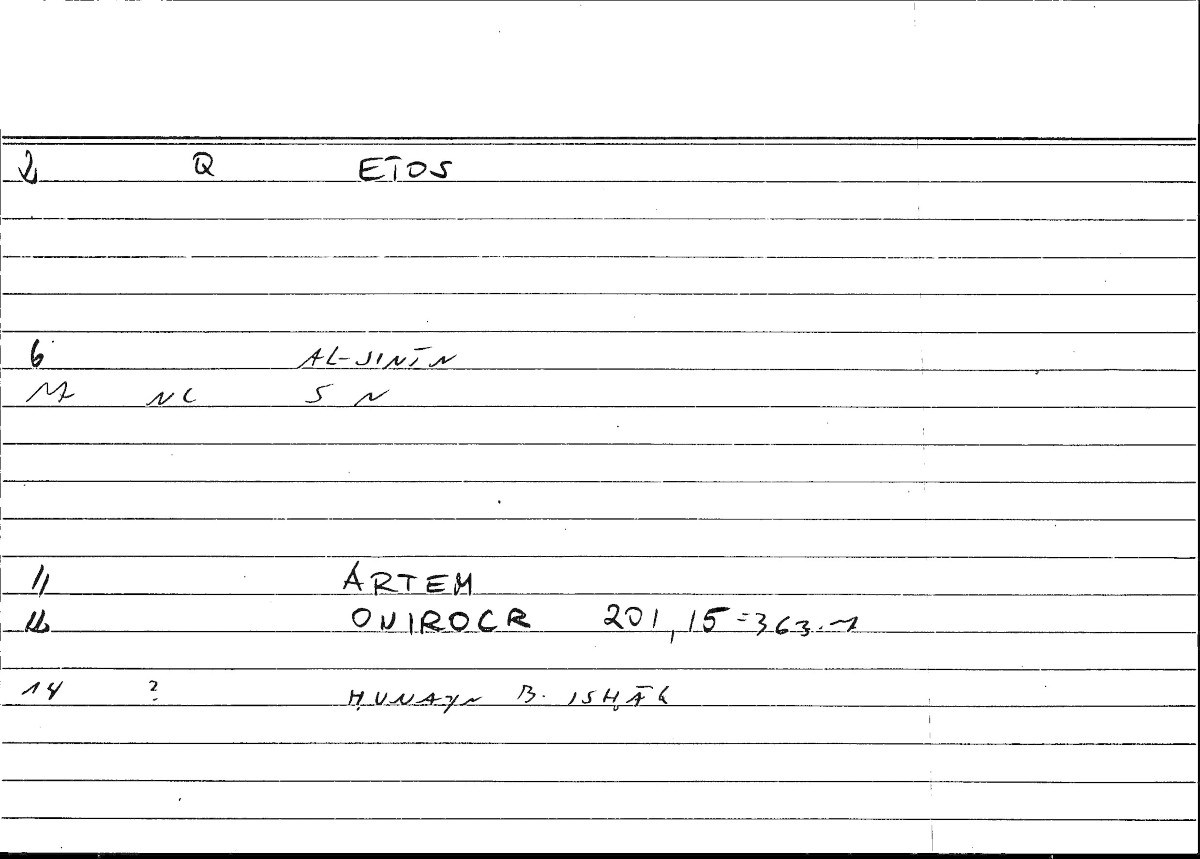 2 Q ETOS
6 AL-SINĪN
M NC S N
11 ARTEM
12 ONIROCR 201,15=363.1
14 ? ḤUNAYN B. ISḤĀQ